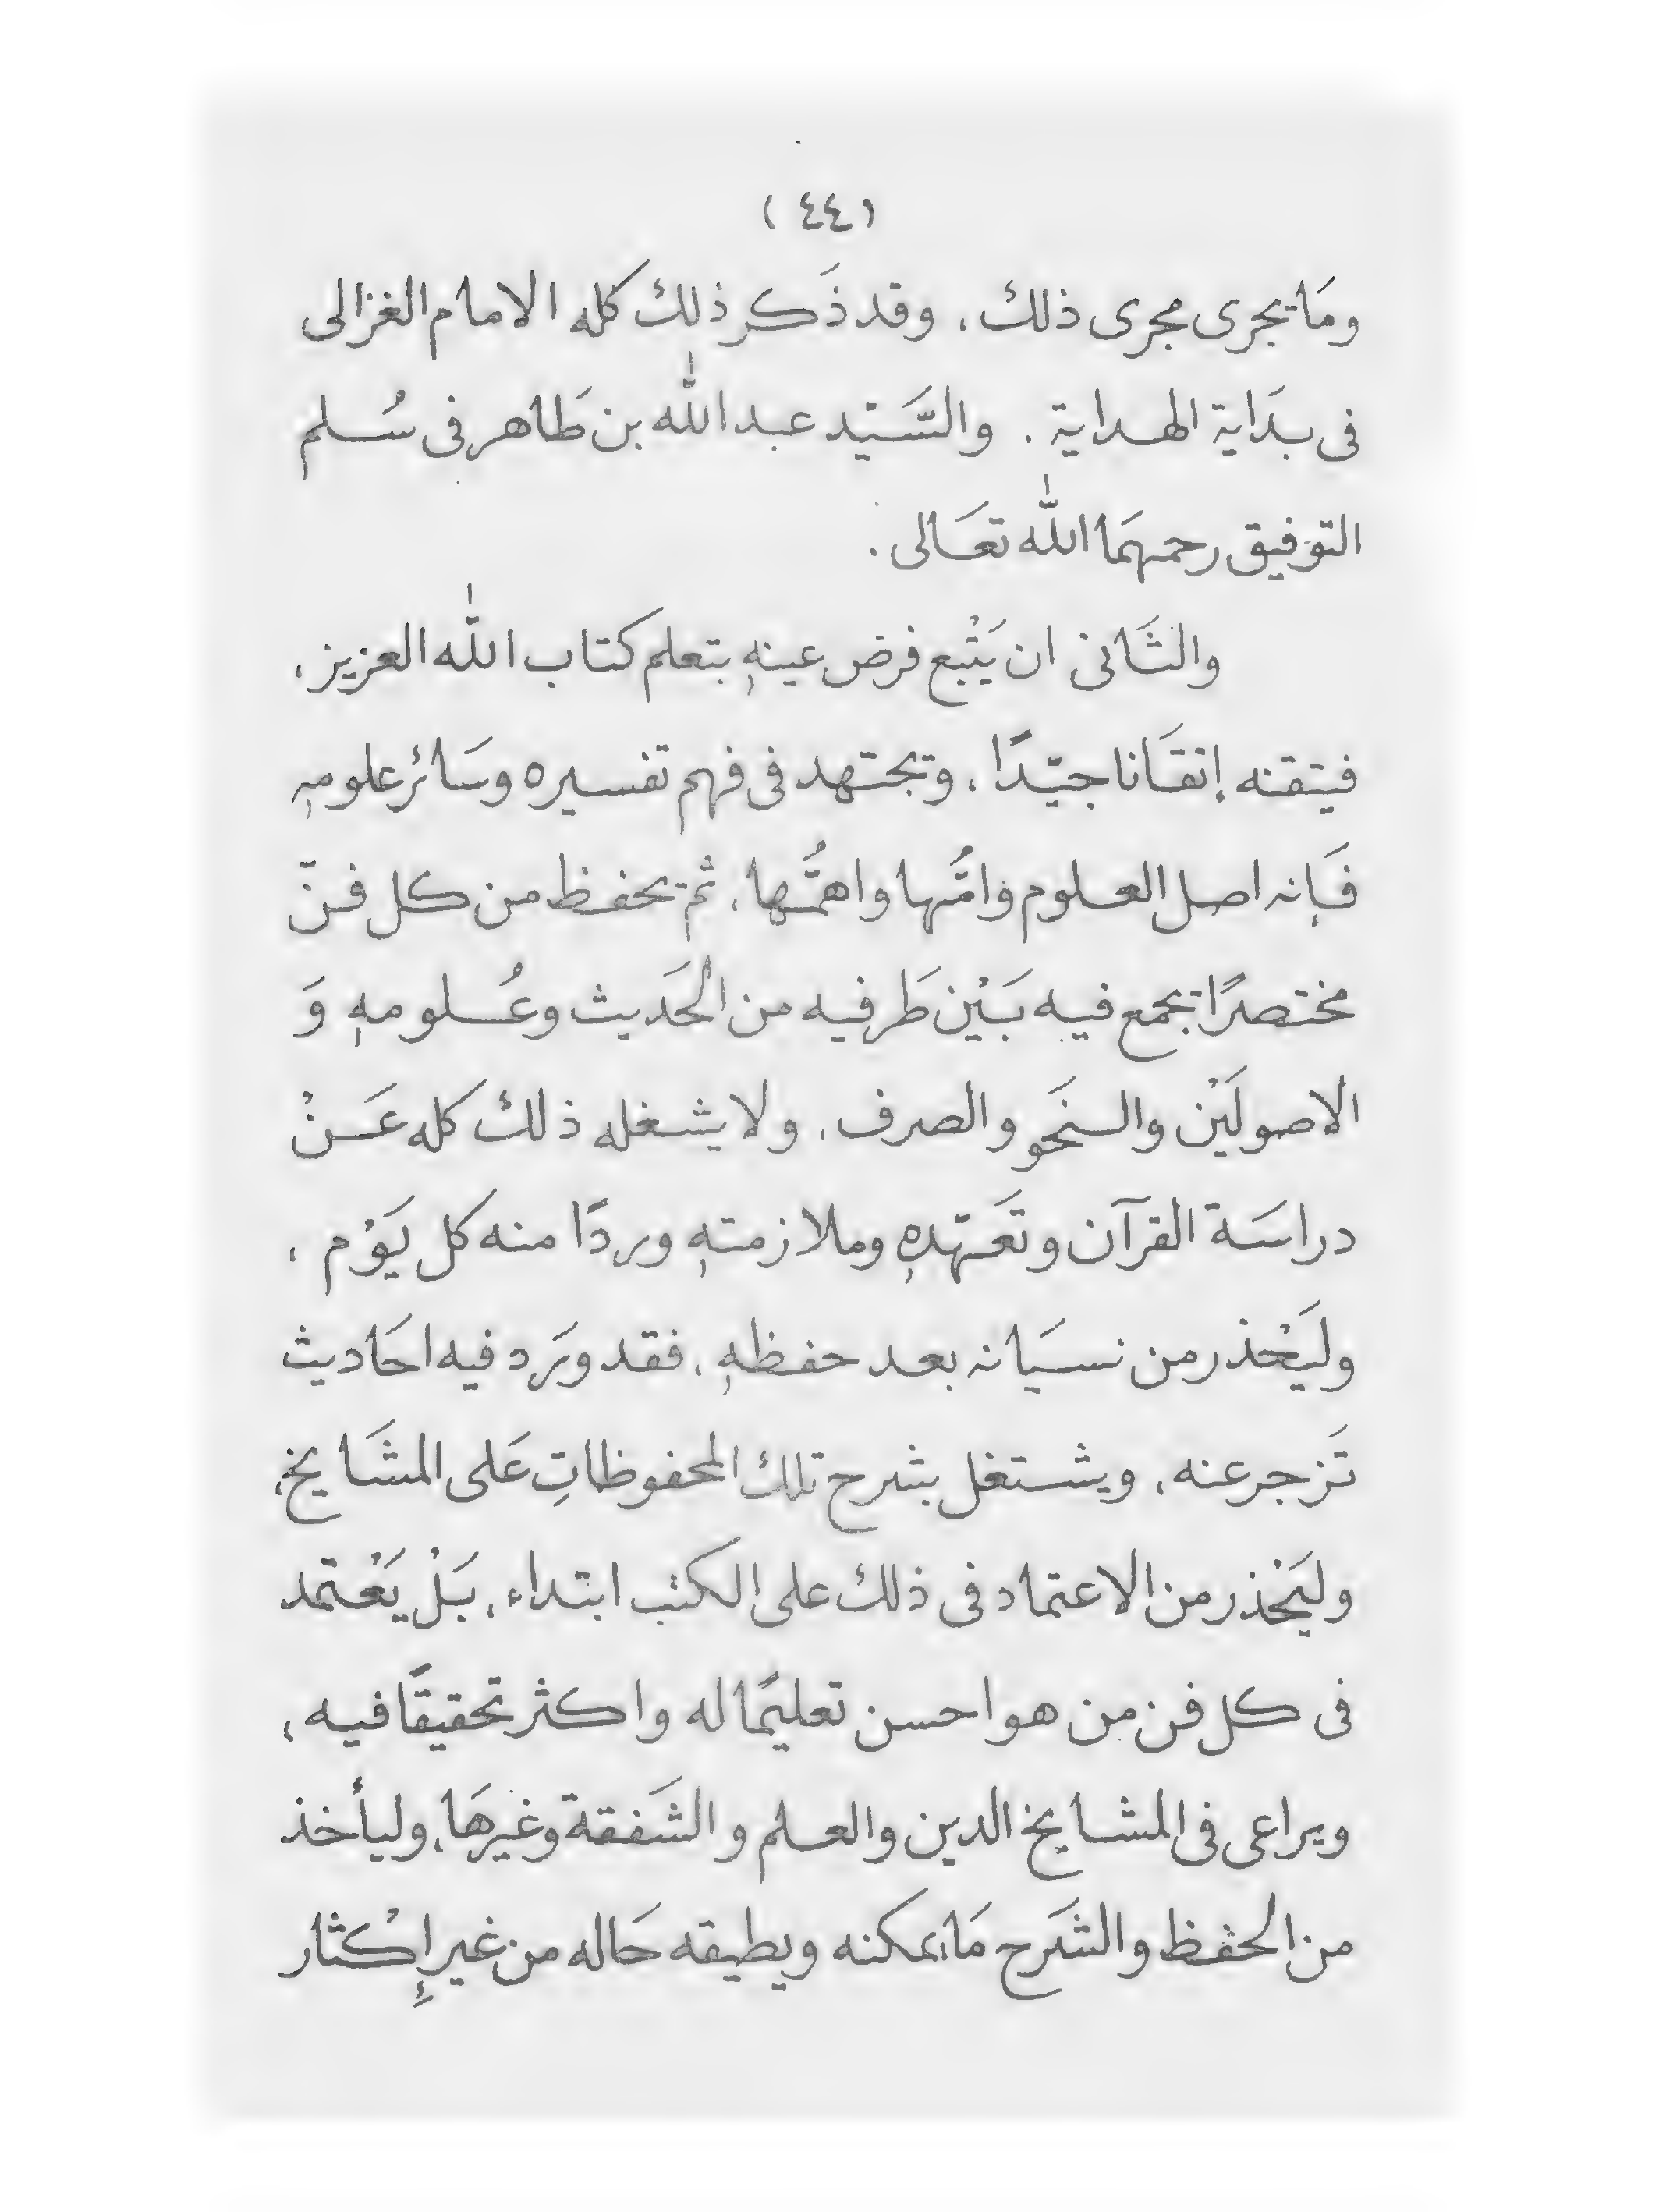 ( ٤٤ )
ومَا يجرى مجرى ذلك، وقد ذَكر ذلك كله الامام الغزالى
فى بدَاية الهداية. والسَّيّد عبد الله بن طَاهر فى سُلم
التوفيق رحمهمَا الله تعَالى.
والثَانى ان يَتْبع فرض عينهٖ بتعلم كتاب الله العزيز،
فيتقنه إتقَانا جيّدًا، ويجتهد فى فهم تفسيره وسَائر علومهٖ
فَإنه اصل العلوم وامُّها واهمُّها، ثم يحفظ من كل فنّ
مختصرًا يجمع فيه بَيْن طَرفيه من الحَديث وعُلومهٖ وَ
الاصولَيْن والنحَو والصرف، ولا يشغله ذلك كله عَنْ
دراسَة القرآن وتَعَهّدهٖ وملازمتهٖ وردًا منه كل يَوْم،
وليَحْذر من نسيَانه بعد حفظهٖ، فقد ورَد فيه احَاديث
تَزجر عنه، ويشتغل بشرح تلك المحفوظاتِ عَلى المشَايخ،
وليَحْذر من الاعتماد فى ذلك على الكتب ابتداء، بَلْ يَعْتمد
فى كل فن من هو احسن تعليمًا له واكثر تحقيقًا فيه،
ويراعى فى المشايخ الدين والعلم والشَفقة وغيرهَا، وليأخذ
من الحفظ والشَرح مَا يمكنه ويطيقه حَاله من غير إِكْثار